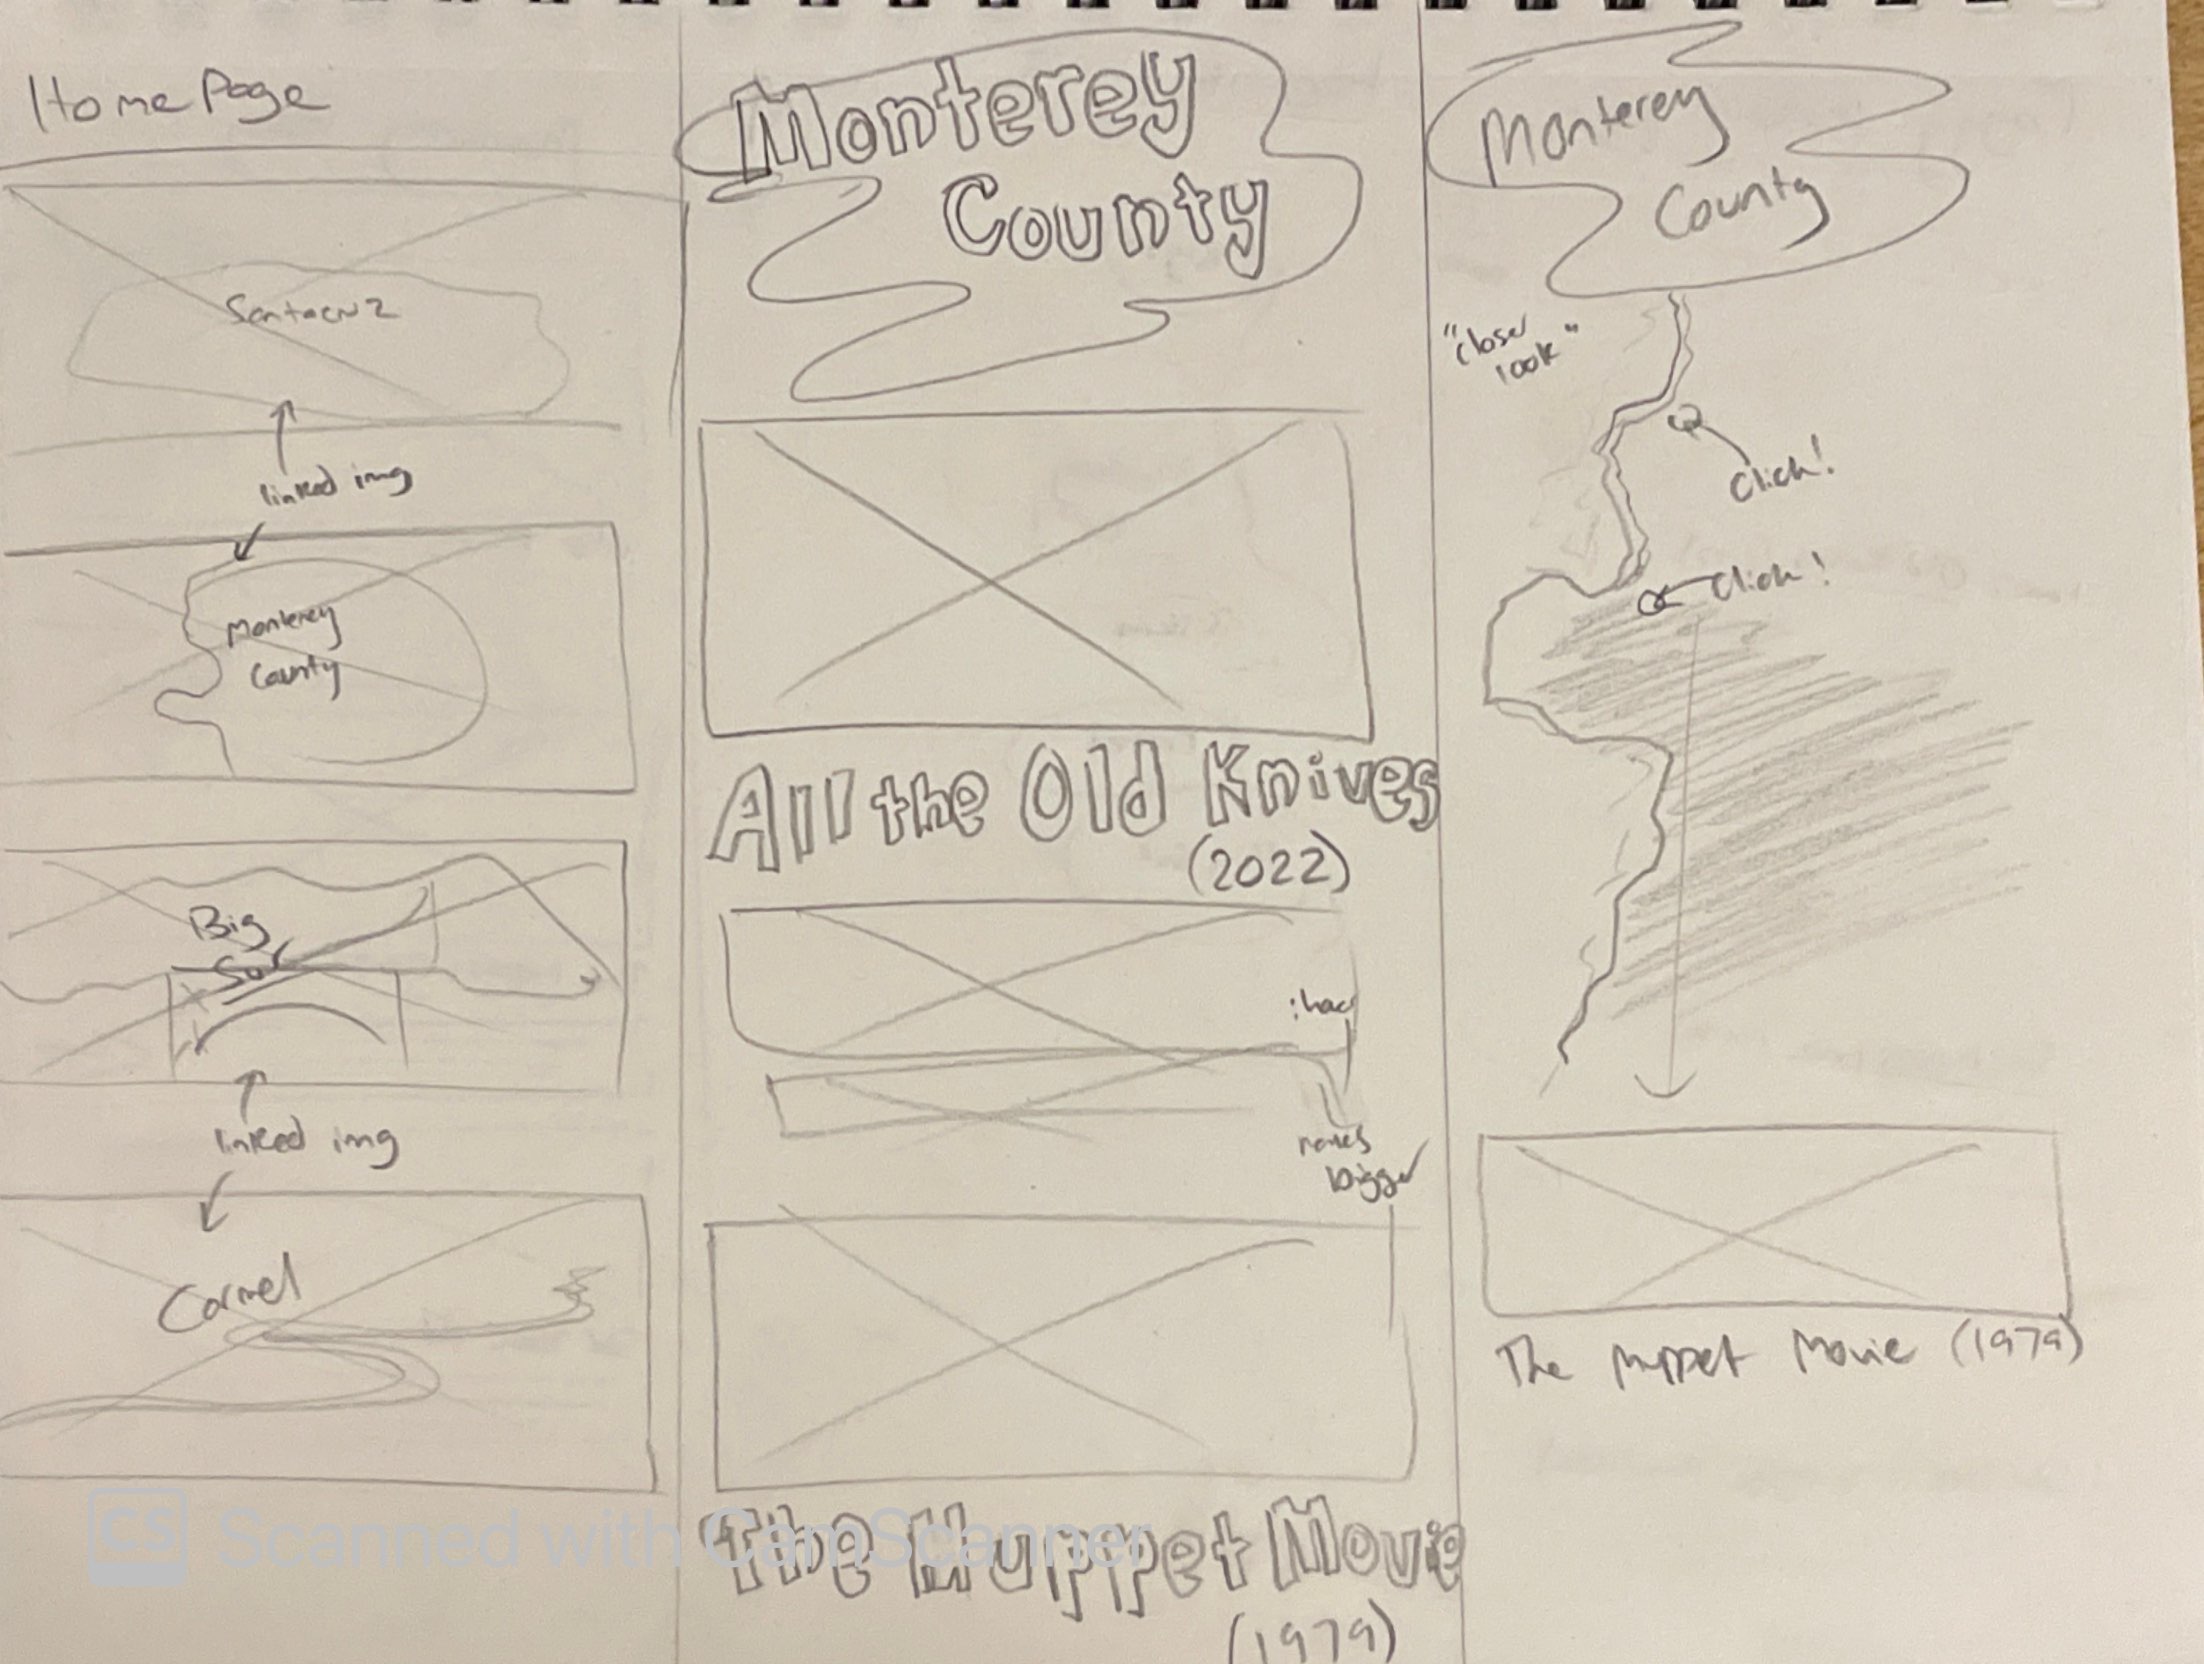 Home Page
Santacruz
linked img
Monterey
County
Big
Sur
linked img
Carmel
Monterey
County
All the Old Knives
(2022)
makes
bigger
The Muppet Movie
(1979)
Monterey
County
"closer
look"
Click!
Click!
The Muppet Movie (1979)
CS Scanned with CamScanner